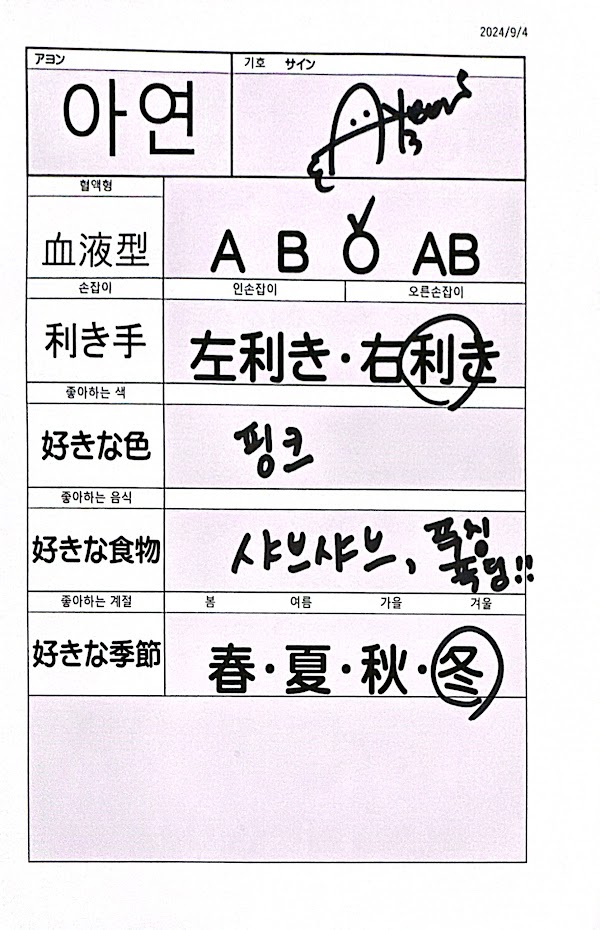 2024/9/4
アヨン
기호 サイン
아연
혈액형
血液型
A B O AB
손잡이
인손잡이 오른손잡이
利き手
左利き・右利き
좋아하는 색
好きな色
핑크
좋아하는 음식
好きな食物
샤브샤브,
푸딩!!
좋아하는 계절
봄 여름 가을 겨울
好きな季節
春・夏・秋・冬